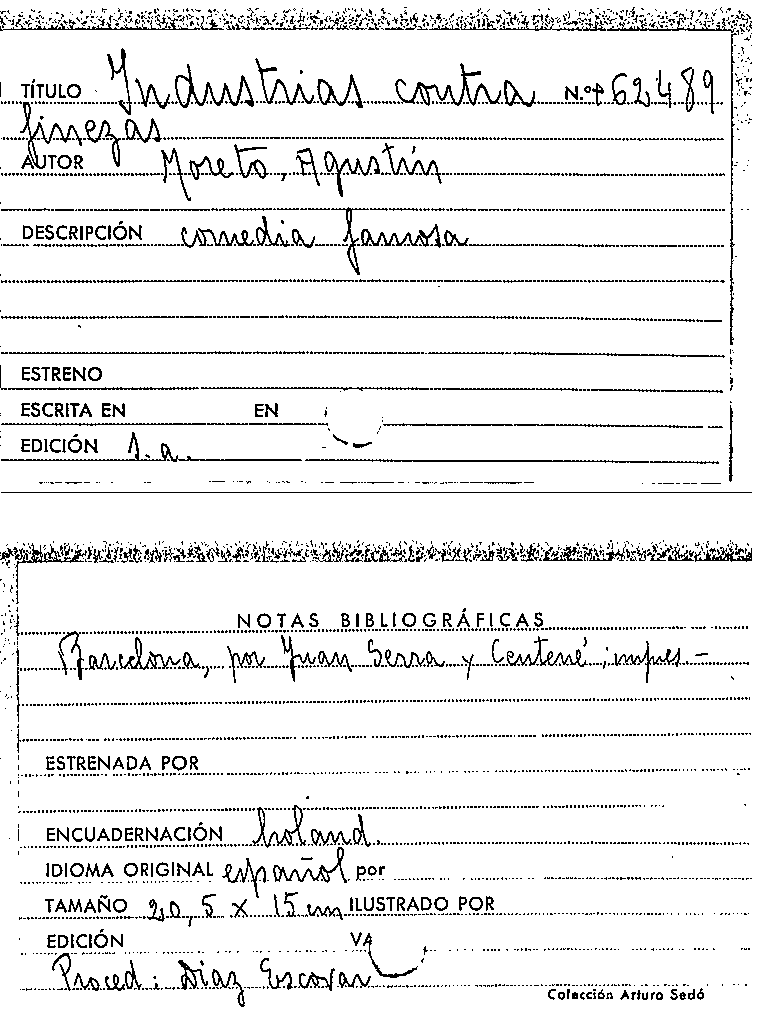 TÍTULO Industrias contra N.º 62489
finezas
AUTOR Moreto, Agustín
DESCRIPCIÓN comedia famosa
ESTRENO
ESCRITA EN EN
EDICIÓN s.a.
NOTAS BIBLIOGRÁFICAS
Barcelona, por Juan Serra y Centené, impres.-
ESTRENADA POR
ENCUADERNACIÓN holand.
IDIOMA ORIGINAL español por
TAMAÑO 20,5 x 15 cm ILUSTRADO POR
EDICIÓN VA
Proced: Diaz Escovar
Colección Arturo Sedó